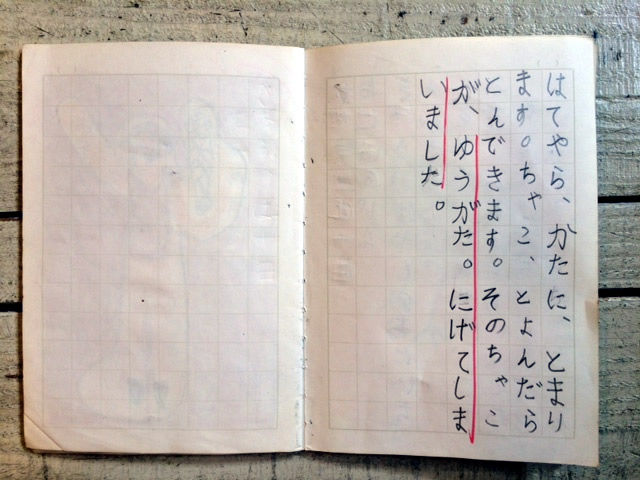 はてやら、かたに、とまり
ます。ちゃこ、とよんだら
とんできます。そのちゃこ
が、ゆうがた。にげてしま
いました。